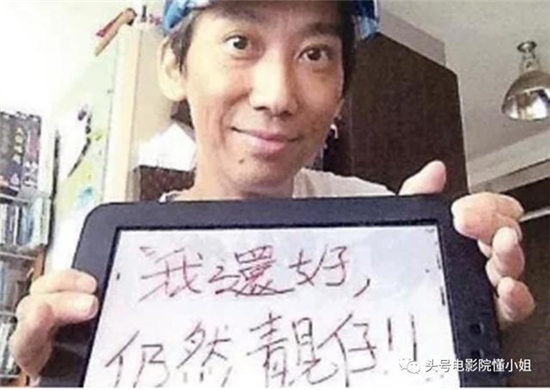 我還好,
仍然靚仔!!
头号电影院懂小姐